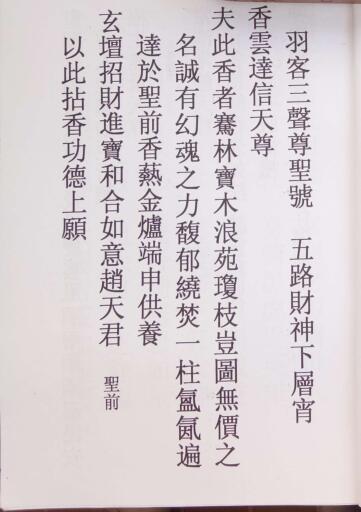 羽客三聲尊聖號　五路財神下層宵
香雲達信天尊
夫此香者騫林寶木浪苑瓊枝豈圖無價之
名誠有幻魂之力馥郁繞焚一柱氳氤遍
達於聖前香熱金爐端申供養
玄壇招財進寶和合如意趙天君　聖前
以此拈香功德上願